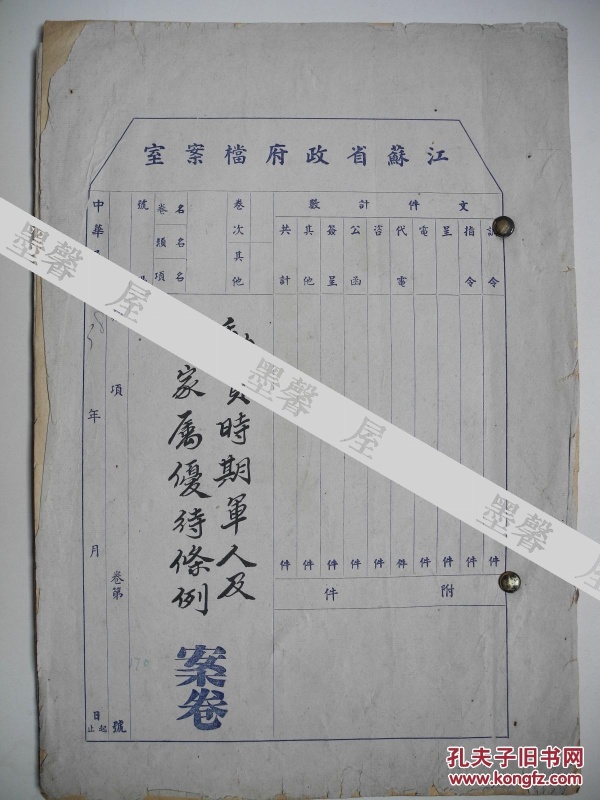 江蘇省政府檔案室
文件計數
令
指令
呈
電
代電
咨
公函
簽呈
其他
共計
件 件 件 件 件 件 件 件 件 件
附件
卷次
其他
卷名
類名
項名
時期軍人及
家屬優待條例
案卷
號
項 卷第 號
中華 年 月 日 起止
墨馨屋
墨馨屋
墨馨屋
孔夫子旧书网
www.kongfz.com